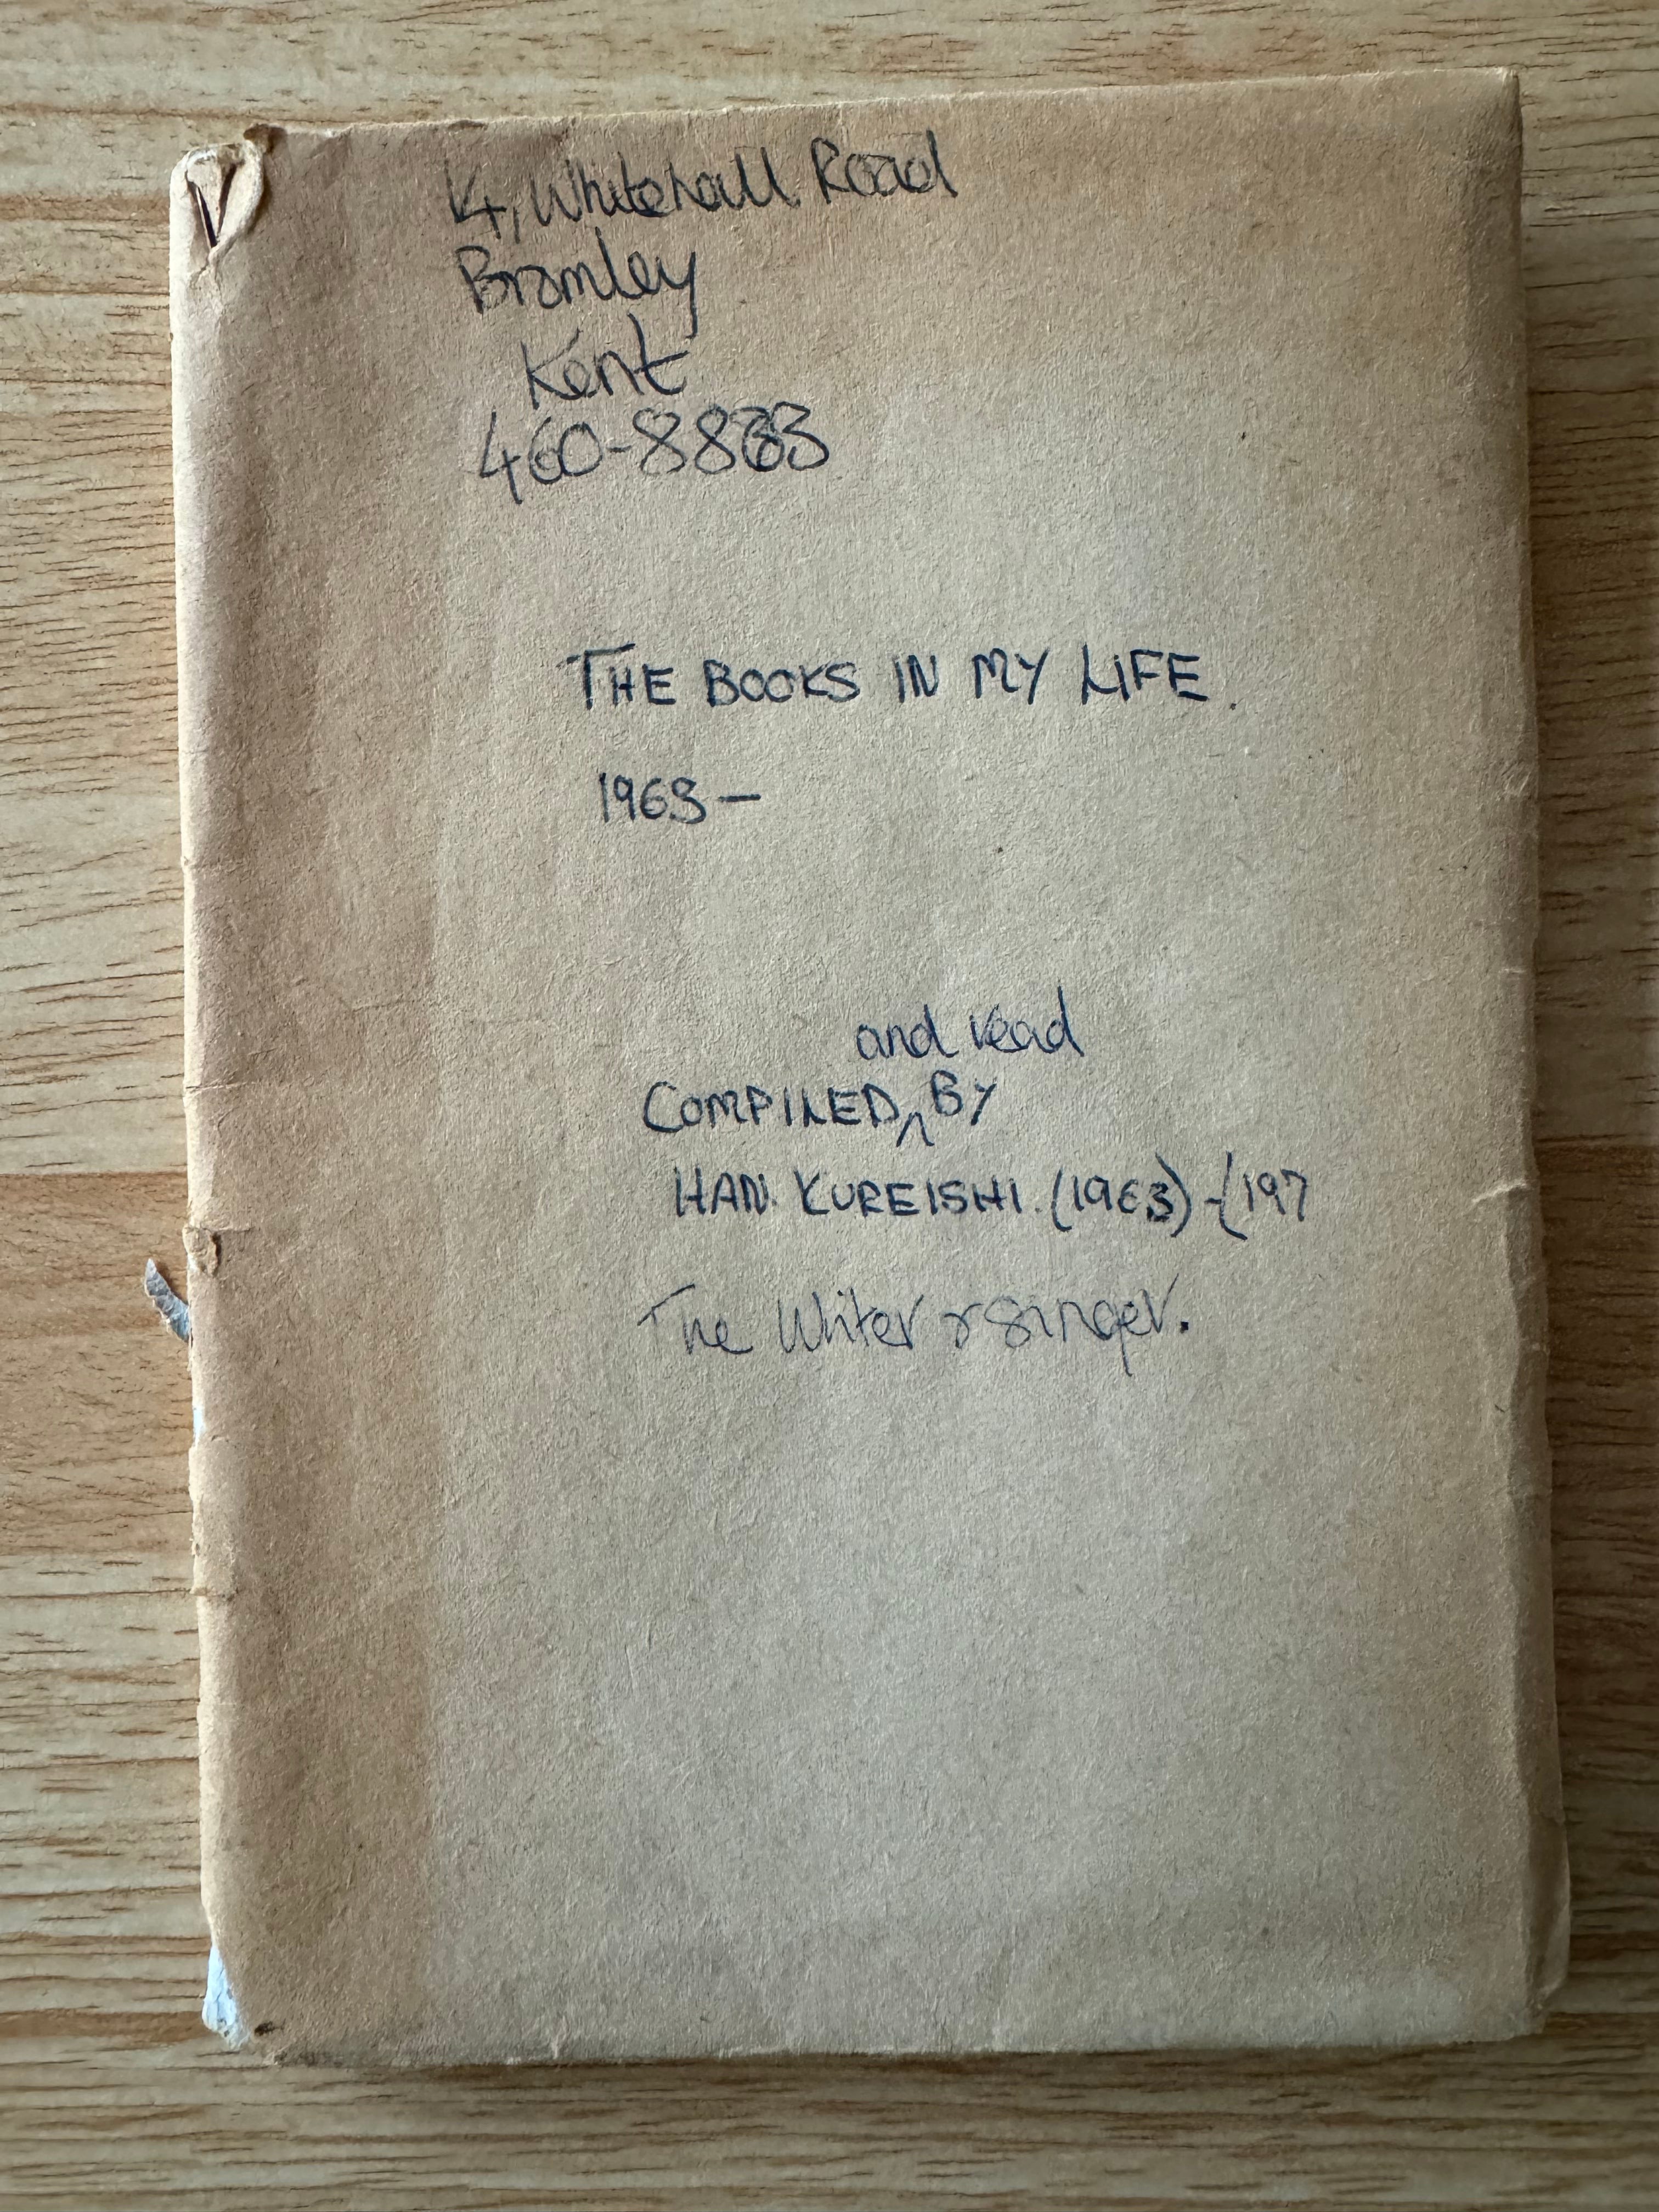 14, Whitehall Road
Bromley
Kent
460-8833
THE BOOKS IN MY LIFE.
1963 —
and read
COMPILED ^ BY
HAN. KUREISHI. (1963) - (197
The Writer & Singer.